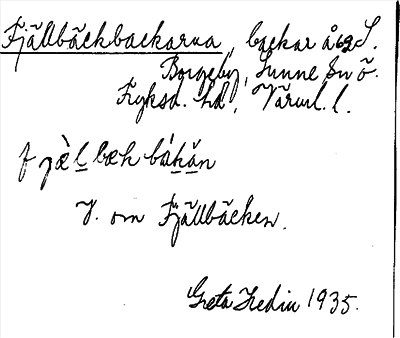 Fjällbäckbackarna, backar å 62 S.
Borgeby, Sunne sn Ö.
Fryksd. hd, Värml. l.
fjæ̀l bæk bákăn
V. om Fjällbäcken.
Greta Hedin 1935.